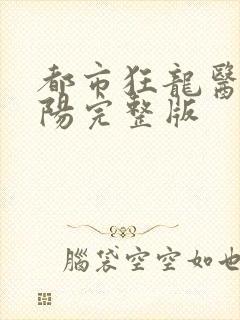 都市狂龍醫
陽完整版
腦袋空空如也